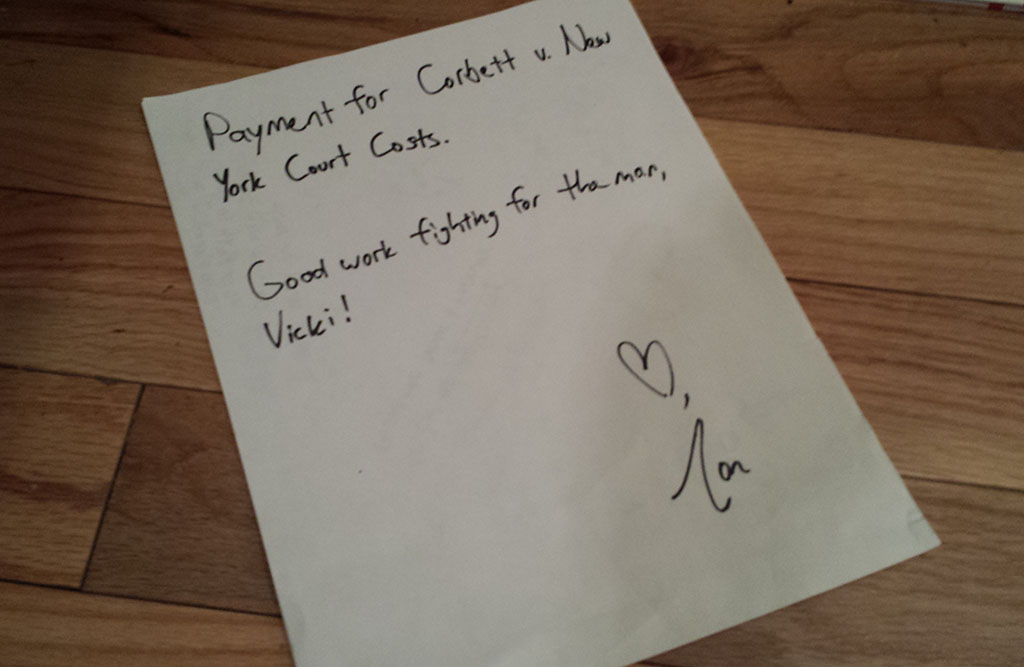 Payment for Corbett v. New
York Court Costs.
Good work fighting for the man,
Vicki!
♥,
Jon